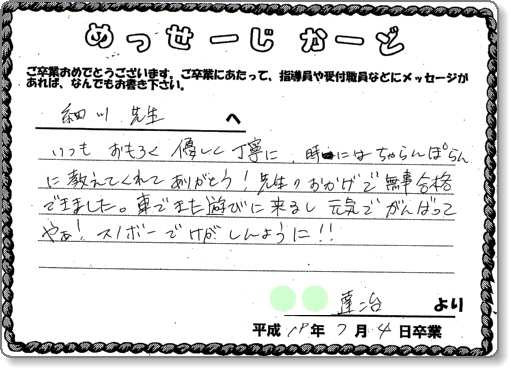 めっせーじ かーど
ご卒業おめでとうございます。ご卒業にあたって、指導員や受付職員などにメッセージが
あれば、なんでもお書き下さい。
細川 先生 へ
いつも おもろく 優しく 丁寧に、時にはちゃらんぽらん
に教えてくれて ありがとう!先生のおかげで無事合格
できました。車でまた遊びに来るし 元気で がんばって
やぁ! スノボーでけがしんように!!
蓮治 より
平成 18年 7月 4日卒業